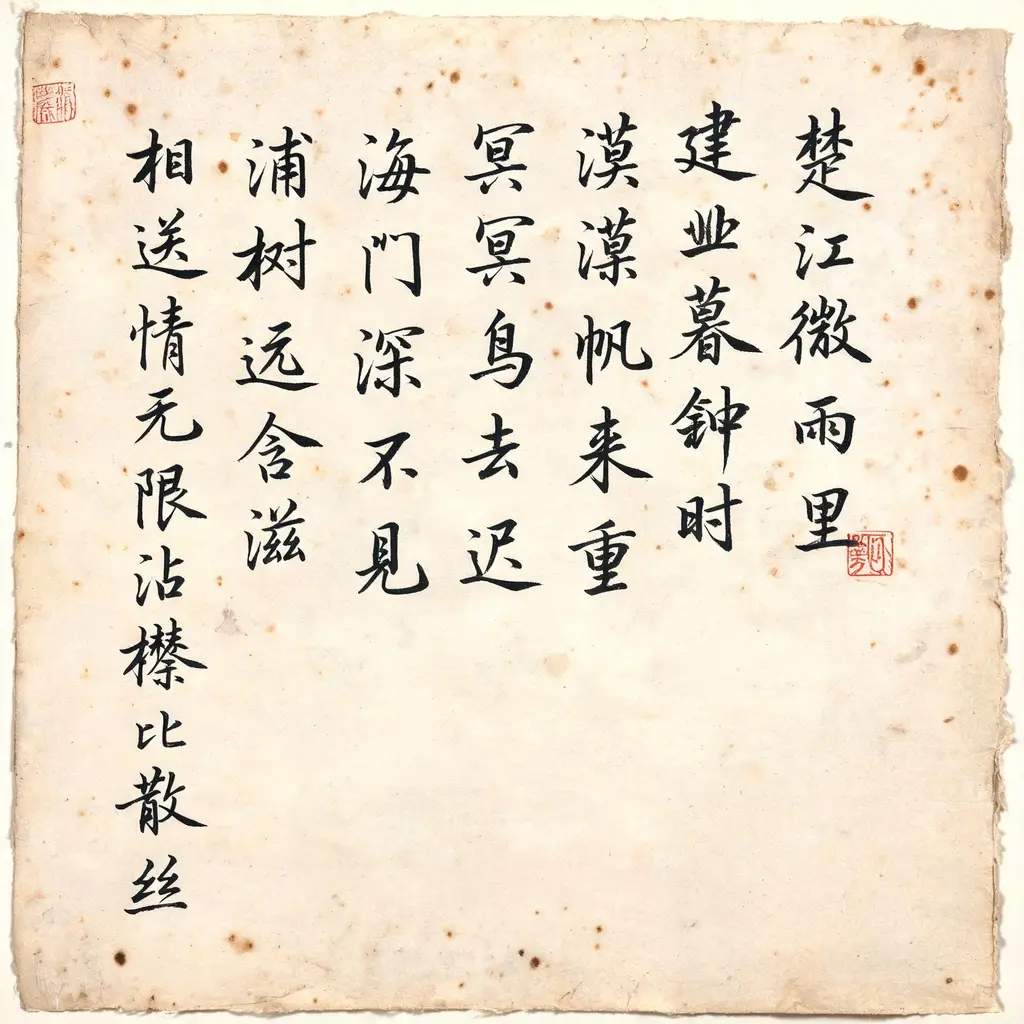 楚江微雨里
建业暮钟时
漠漠帆来重
冥冥鸟去迟
海门深不见
浦树远含滋
相送情无限
沾襟比散丝